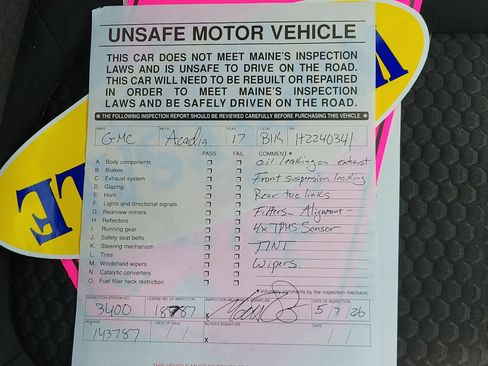 UNSAFE MOTOR VEHICLE
THIS CAR DOES NOT MEET MAINE'S INSPECTION
LAWS AND IS UNSAFE TO DRIVE ON THE ROAD.
THIS CAR WILL NEED TO BE REBUILT OR REPAIRED
IN ORDER TO MEET MAINE'S INSPECTION
LAWS AND BE SAFELY DRIVEN ON THE ROAD.
★ THE FOLLOWING INSPECTION REPORT SHOULD BE REVIEWED CAREFULLY BEFORE PURCHASING THIS VEHICLE. ★
MAKE GMC MODEL Acadia YEAR 17 COLOR Blk VIN HZ240341
PASS FAIL COMMENT ★
A. Body components oil leaking on exhaust
B. Brakes Front suspension leaking
C. Exhaust system
D. Glazing Rear toe links
E. Horn
F. Lights and directional signals Filters - Alignment -
G. Rearview mirrors
H. Reflectors 4x TPMS Sensor
I. Running gear
J. Safety seat belts TINT
K. Steering mechanism
L. Tires Wipers.
M. Windshield wipers
N. Catalytic converters
O. Fuel filler neck restriction
★ Voluntary comments by the inspection mechanic
INSPECTION STATION NO. LICENSE NO. OF INSPECTOR INSPECTION MECHANIC'S SIGNATURE DATE OF INSPECTION
3400 18787 X 5/7/26
MILEAGE DATE OF SALE BUYER'S SIGNATURE DATE
143787 / / X / /